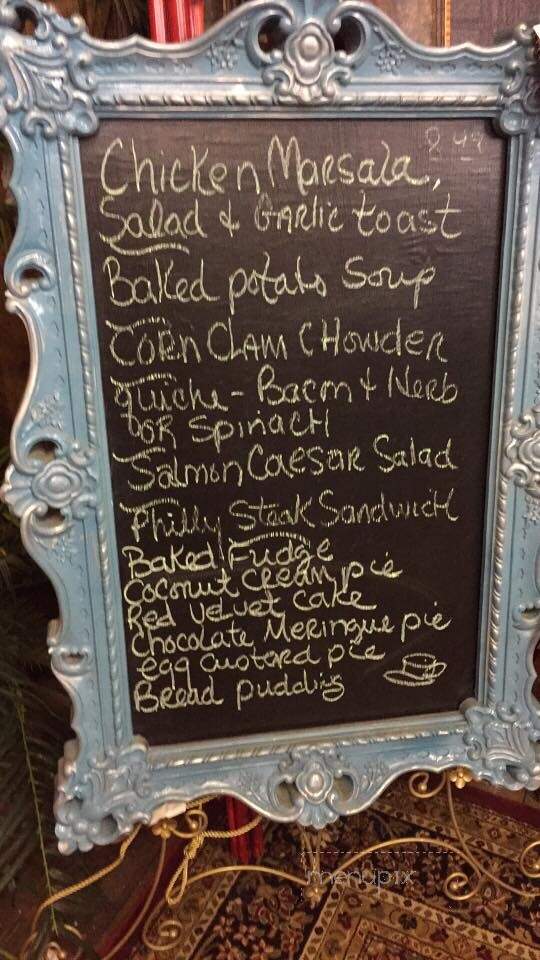 8.49
Chicken Marsala,
Salad & Garlic toast
Baked potato Soup
Corn Clam CHowder
Quiche - Bacon & Herb
OR Spinach
Salmon Caesar Salad
Philly Steak Sandwich
Baked Fudge
Coconut Cream pie
Red Velvet Cake
Chocolate Meringue pie
egg custard pie
Bread pudding
menupix